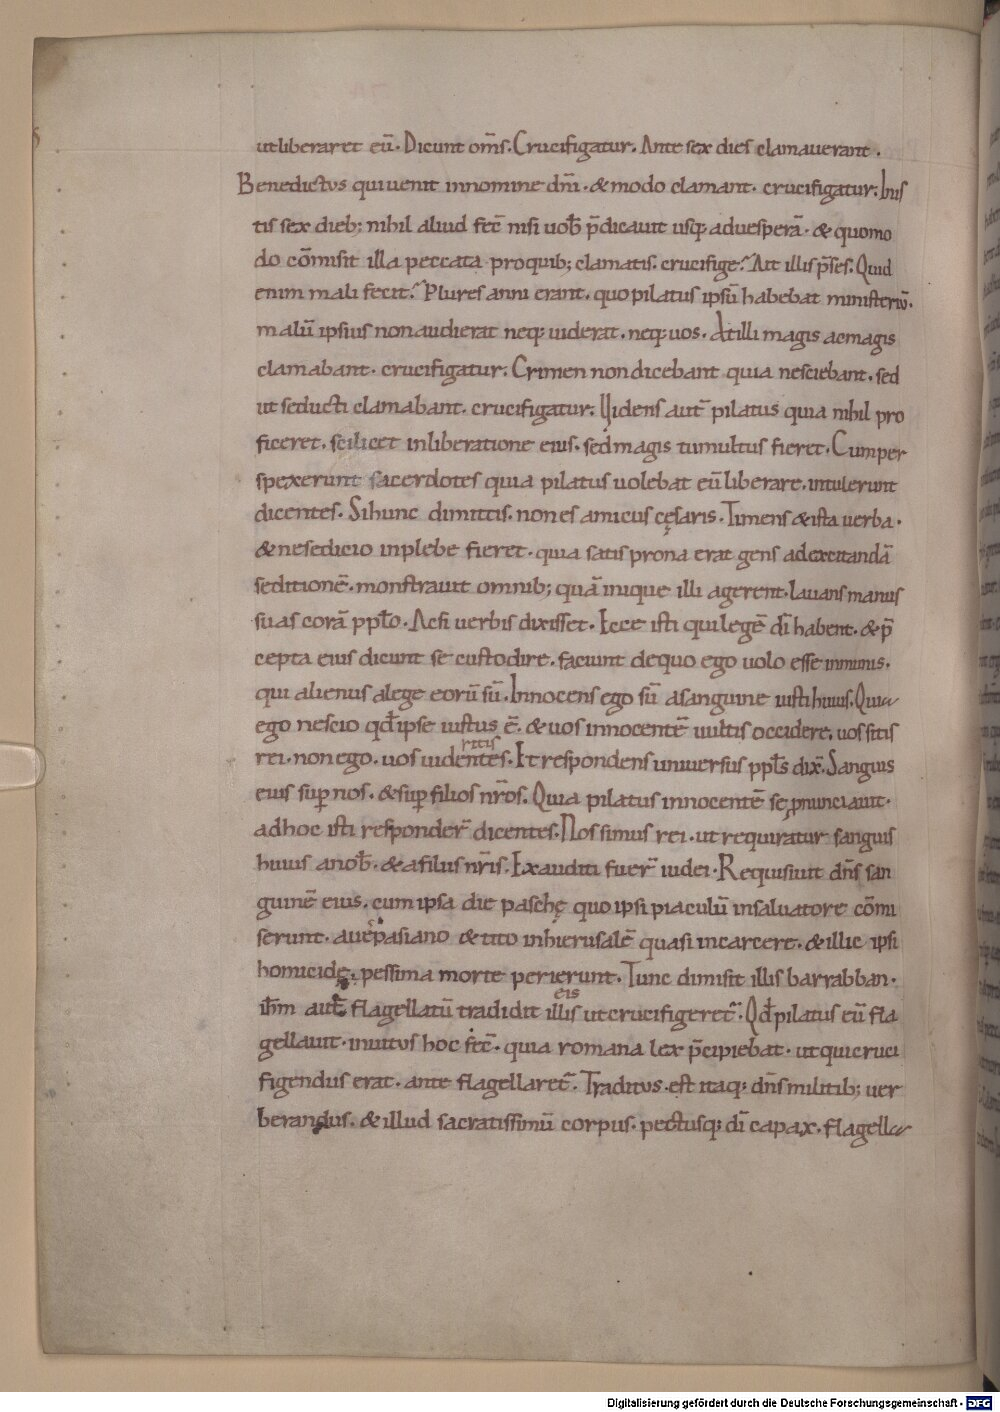 ut liberaret eū. Dicunt om̄s. Crucifigatur. Ante sex dies clamauerant.
Benedictus qui uenit in nomine dn̄i. & modo clamant. crucifigatur. In is
tis sex dieb; nihil aliud fec̄ nisi uob̄ p̄dicauit usq; ad uesperā. & quomo
do cōmisit illa peccata pro quib; clamatis. crucifige. Ait illis p̄ses. Quid
enim mali fecit. Plures anni erant. quo pilatus ipsū habebat ministeriū.
malū ipsius non audierat neq; uiderat. neq; uos. At illi magis ac magis
clamabant. crucifigatur. Crimen non dicebant quia nesciebant. sed
ut seducti clamabant. crucifigatur. Uidens aut̄ pilatus quia nihil pro
ficeret. scilicet in liberatione eius. sed magis tumultus fieret. Cum per
spexerunt sacerdotes quia pilatus uolebat eū liberare. intulerunt
dicentes. Si hunc dimittis. non es amicus cęsaris. Timens & ista uerba.
& ne sedicio in plebe fieret. quia satis prona erat gens ad excitandā
seditionē. monstrauit omnib; quā inique illi agerent. Lauans manus
suas corā pplo. Ac si uerbis dixisset. Ecce isti qui legē dī habent. & p̄
cepta eius dicunt se custodire. faciunt de quo ego uolo esse inmunis.
qui alienus a lege eorū sū. Innocens ego sū a sanguine iusti huius. Quia
ego nescio qd̄ ipse iustus ē. & uos innocentē uultis occidere. uos sitis
ritis
rei. non ego. uos uidentes. Et respondens uniuersus ppl̄s dix̄. Sanguis
eius sup nos. & sup filios nr̄os. Quia pilatus innocentē se pnunciauit.
ad hoc isti responder̄ dicentes. Nos simus rei. ut requiratur sanguis
huius a nob̄. & a filiis nr̄is. Exauditi fuer̄ iudei. Requisiuit dn̄s san
guinē eius. cum ipsa die paschę quo ipsi piaculū in saluatore cōmi
serunt. a uespasiano & tito in hierusalē quasi in carcere. & illic ipsi
homicidę. pessima morte perierunt. Tunc dimisit illis barrabban.
eis
ih̄m aut̄ flagellatū tradidit illis ut crucifigeret̄. Qd̄ pilatus eū fla
gellauit. inuitus hoc fec̄. quia romana lex p̄cipiebat. ut qui cruci
figendus erat. ante flagellaret̄. Traditus. est itaq; dn̄s militib; uer
berandus. & illud sacratissimū corpus. pectusq; dī capax. flagella
Digitalisierung gefördert durch die Deutsche Forschungsgemeinschaft - DFG